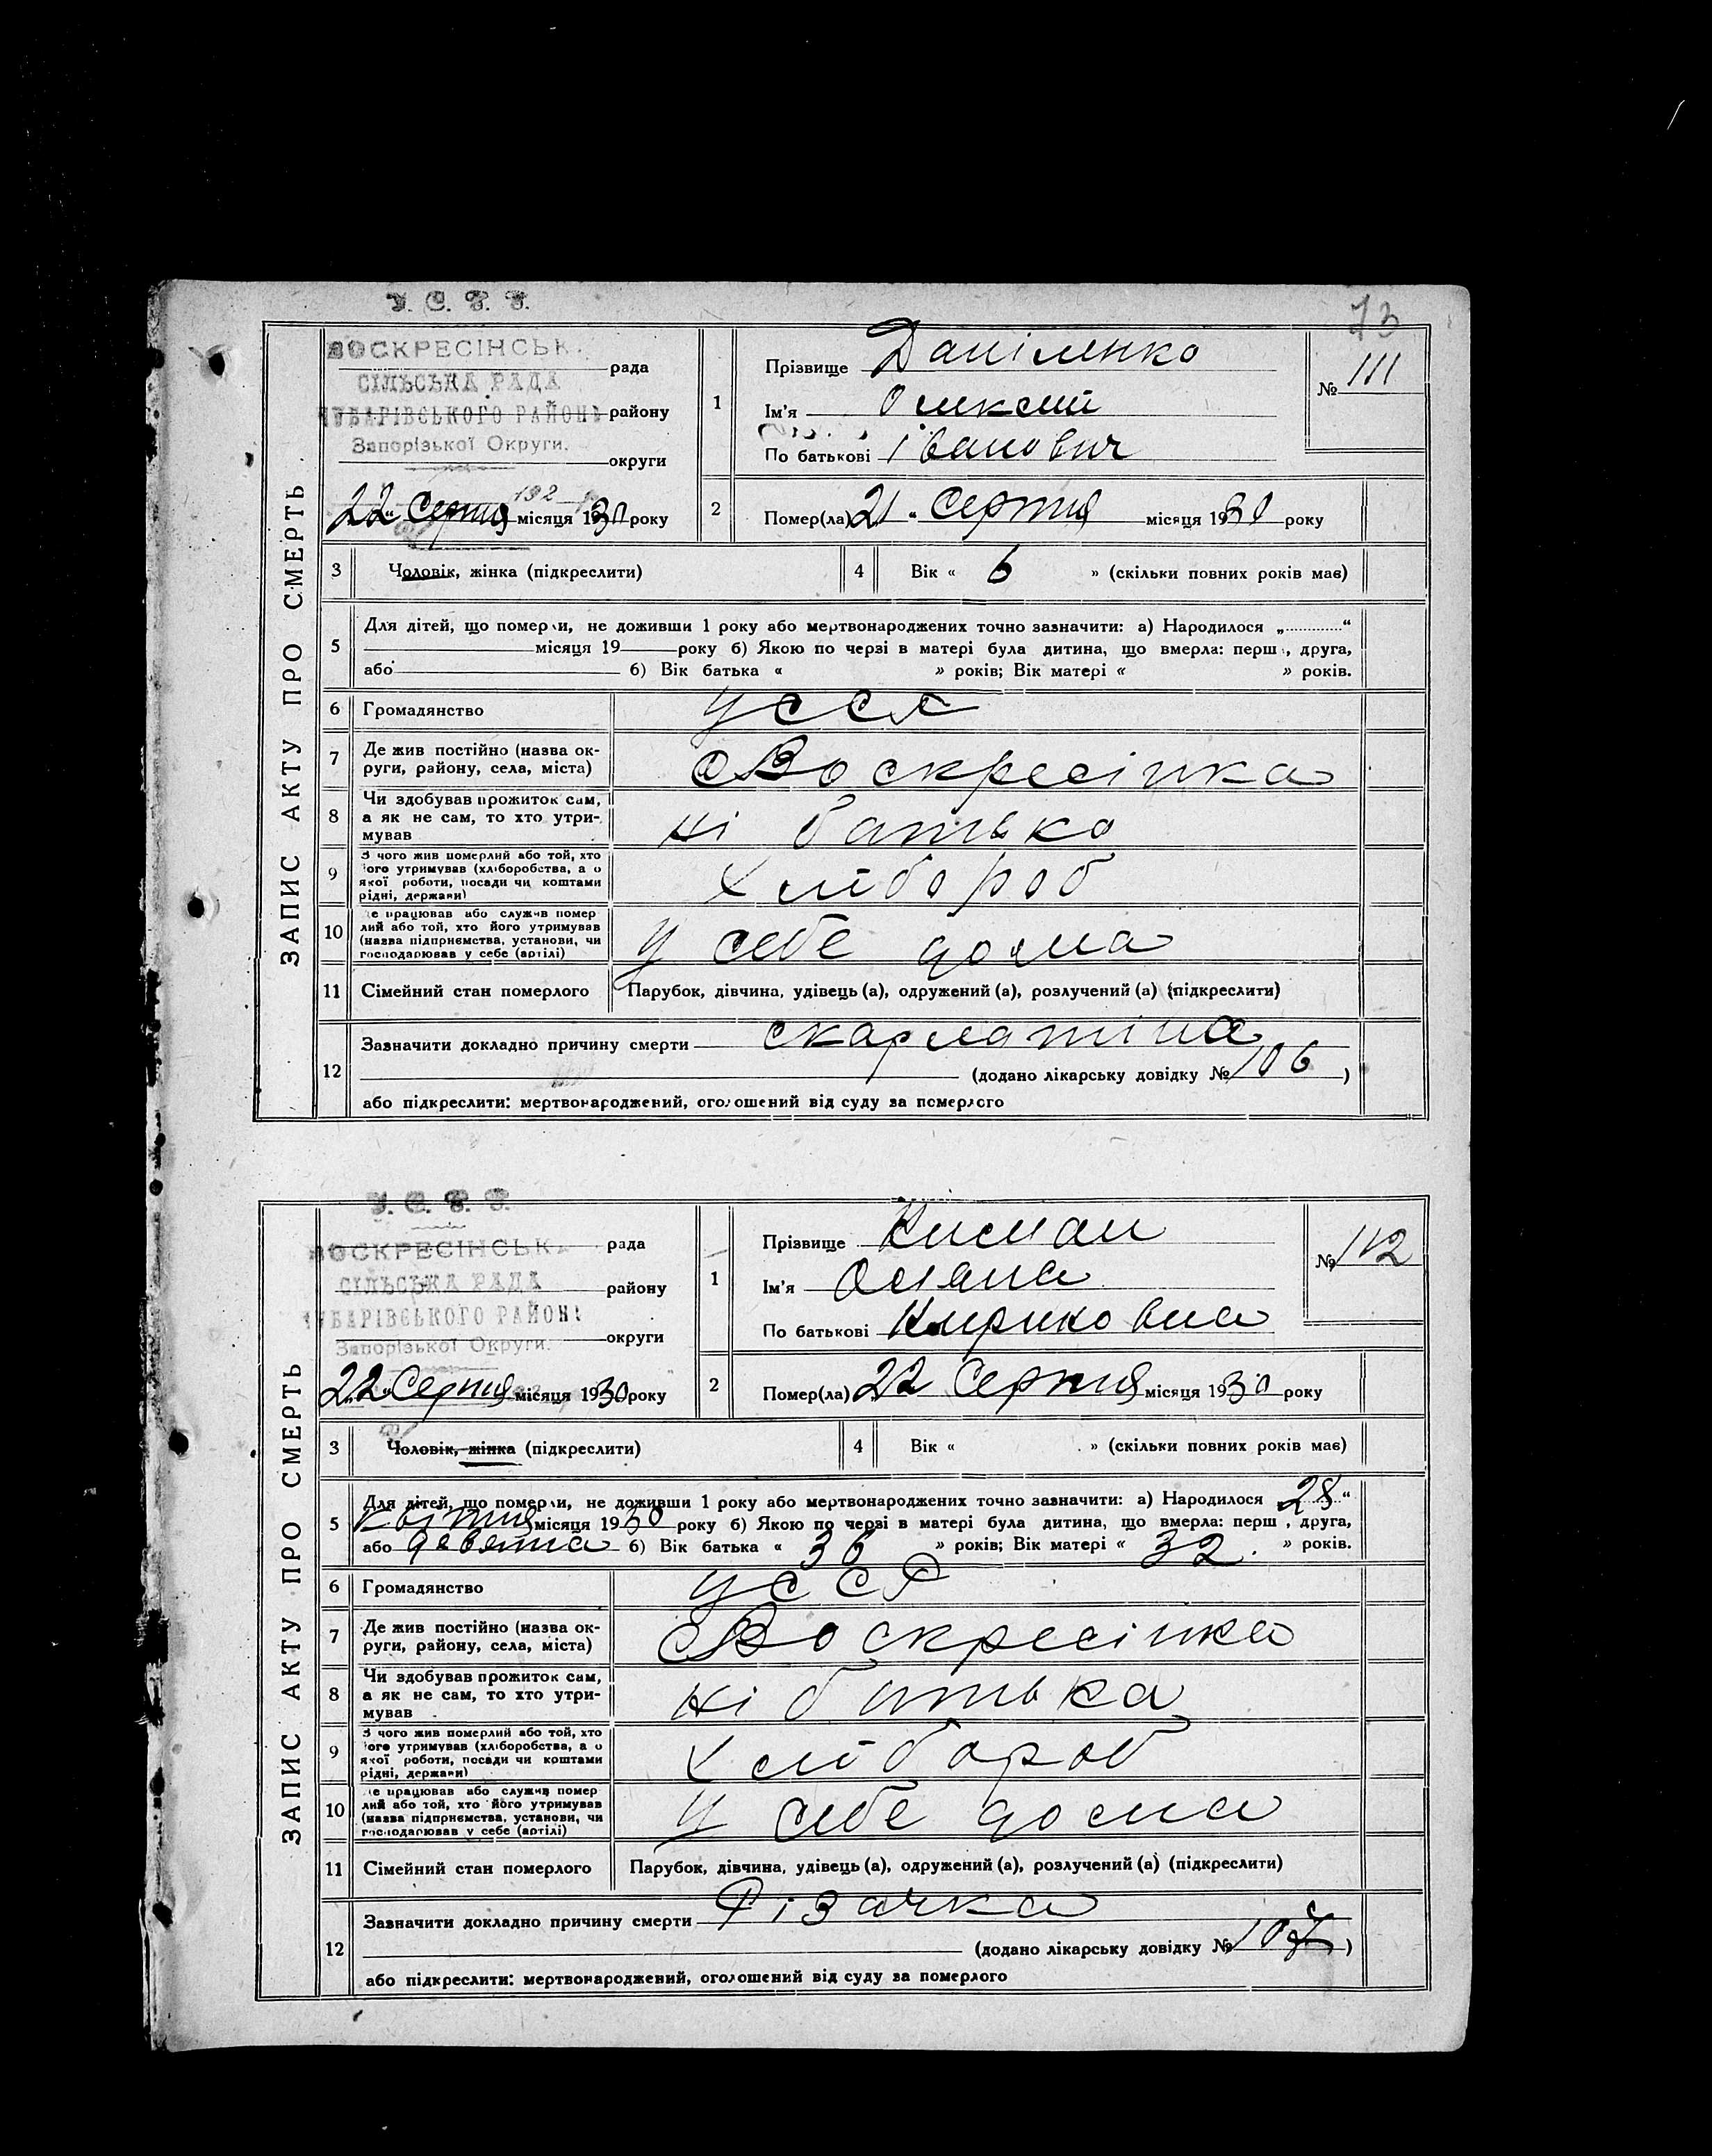 73
У. С. Р. Р.
ВОСКРЕСІНСЬК.
рада
СІЛЬСЬКА РАДА
ЧУБАРІВСЬКОГО РАЙОНУ району
Запорізької Округи.
округи
22 " Серпня місяця 1930 року
ЗАПИС АКТУ ПРО СМЕРТЬ.
1 Прізвище Даніленко
№ 111
Ім'я Олексій
По батькові Іванович
2 Помер(ла) 21 " Серпня місяця 1930 року
3 Чоловік, жінка (підкреслити) 4 Вік « 6 » (скільки повних років має)
5 Для дітей, що померли, не доживши 1 року або мертвонароджених точно зазначити: а) Народилося „ “
місяця 19 року б) Якою по черзі в матері була дитина, що вмерла: перша, друга,
або б) Вік батька « » років; Вік матері « » років.
6 Громадянство УССР
7 Де жив постійно (назва ок-
руги, району, села, міста) с Воскресінка
8 Чи здобував прожиток сам,
а як не сам, то хто утри-
мував ні батько
9 З чого жив померлий або той, хто
його утримував (хліборобства, а о
якої роботи, посади чи коштами
рідні, держави) Хлібороб
10 Де працював або служив помер
лий або той, хто його утримував
(назва підприємства, установи, чи
господарював у себе (артілі) У себе дома
11 Сімейний стан померлого Парубок, дівчина, удівець (а), одружений (а), розлучений (а) (підкреслити)
12 Зазначити докладно причину смерти скарлатіна
(додано лікарську довідку № 106 )
або підкреслити: мертвонароджений, оголошений від суду за померлого
У. С. Р. Р.
ВОСКРЕСІНСЬКА
рада
СІЛЬСЬКА РАДА
району
ЧУБАРІВСЬКОГО РАЙОНУ
Запорізької Округи.
округи
22 " Серпня місяця 1930 року
ЗАПИС АКТУ ПРО СМЕРТЬ
1 Прізвище Кисман
№ 112
Ім'я Оляна
По батькові Кириковна
2 Помер(ла) 22 Серпня місяця 1930 року
3 Чоловік, жінка (підкреслити) 4 Вік « » (скільки повних років має)
5 Для дітей, що померли, не доживши 1 року або мертвонароджених точно зазначити: а) Народилося „28“
Квітня місяця 1930 року б) Якою по черзі в матері була дитина, що вмерла: перша, друга,
або девята б) Вік батька « 36 » років; Вік матері « 32. » років.
6 Громадянство УССР
7 Де жив постійно (назва ок-
руги, району, села, міста) с Воскресінка
8 Чи здобував прожиток сам,
а як не сам, то хто утри-
мував ні батька
9 З чого жив померлий або той, хто
його утримував (хліборобства, а о
якої роботи, посади чи коштами
рідні, держави) Хлібороб
10 Де працював або служив помер
лий або той, хто його утримував
(назва підприємства, установи, чи
господарював у себе (артілі) У себе дома
11 Сімейний стан померлого Парубок, дівчина, удівець (а), одружений (а), розлучений (а) (підкреслити)
12 Зазначити докладно причину смерти Різачка
(додано лікарську довідку № 107 )
або підкреслити: мертвонароджений, оголошений від суду за померлого